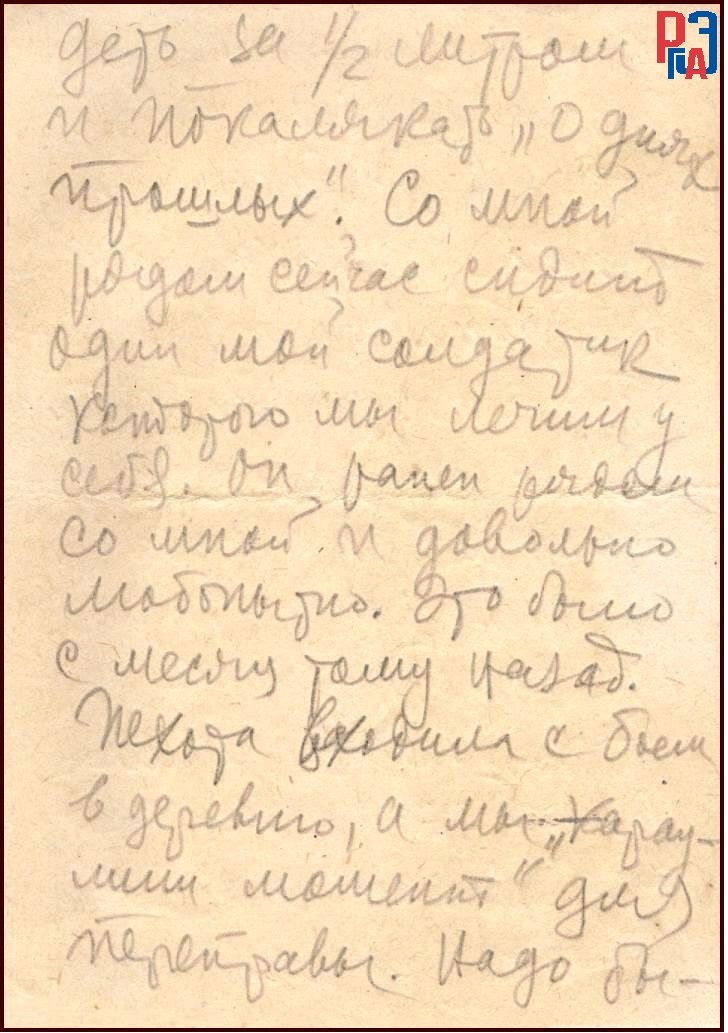 РГАЭ
деть за 1/2 литром
и покалякать „О днях
прошлых“. Со мной
рядом сейчас сидит
один мой солдатик
которого мы лечим у
себя. Он ранен рядом
со мной и довольно
любопытно. Это было
с месяц тому назад.
Пехота входила с боем
в деревню, а мы „карау-
лили момент“ для
переправы. Надо бы-